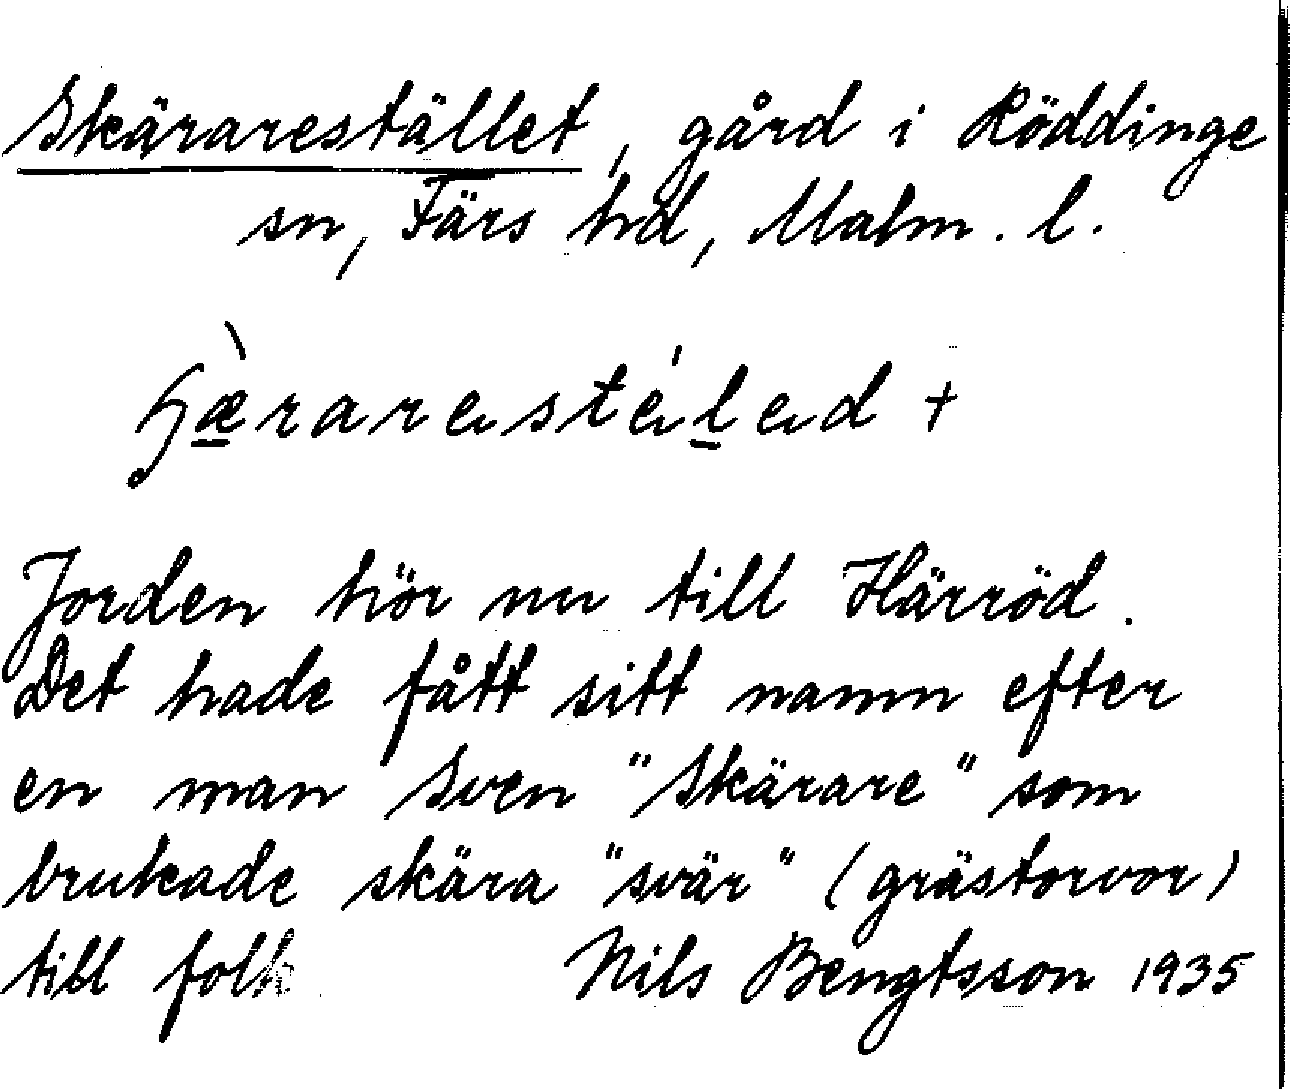 Skärarestället, gård i Röddinge
sn, Färs hd, Malm. l.
Jorden hör nu till Härröd.
Det hade fått sitt namn efter
en man Sven "Skärare" som
brukade skära "svär" (grästorvor)
till folk Nils Bengtsson 1935